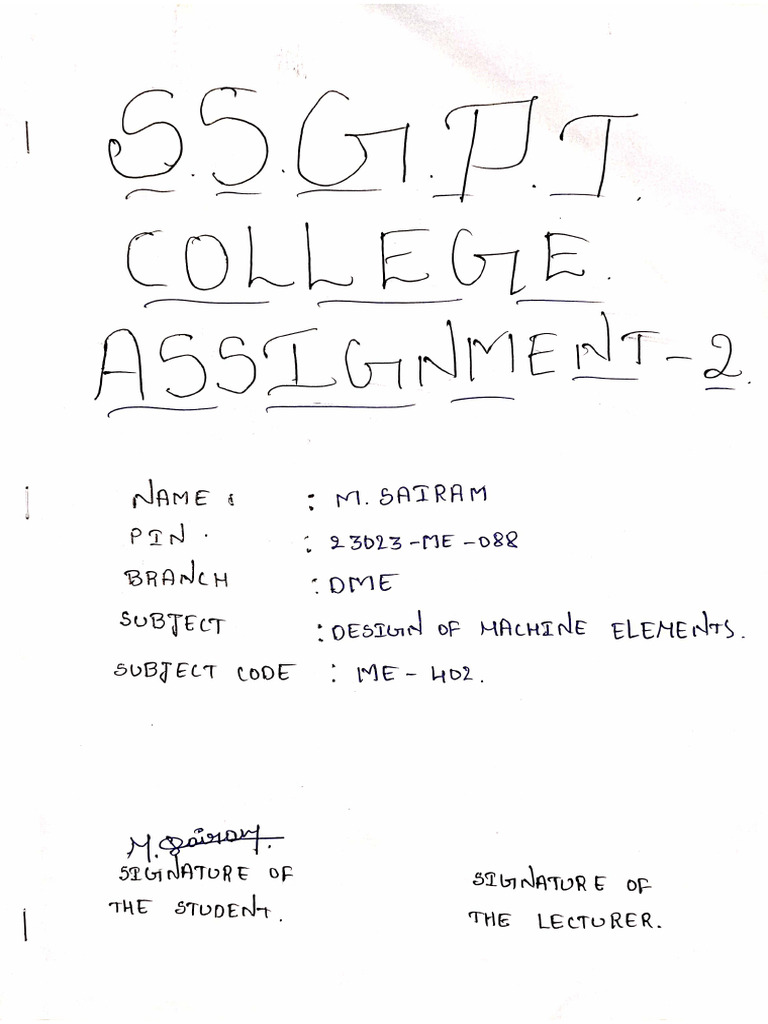 S.S.G.P.T.
COLLEGE.
ASSIGNMENT-2.
NAME : : M. SAIRAM
PIN . : 23023-ME-088
BRANCH : DME
SUBJECT : DESIGN OF MACHINE ELEMENTS.
SUBJECT CODE : ME-402.
M. Sairam.
SIGNATURE OF
THE STUDENT.
SIGNATURE OF
THE LECTURER.